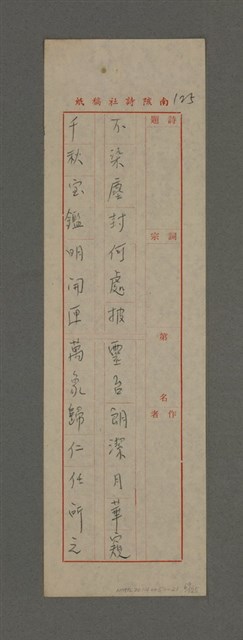 南陔詩社稿紙
125
詩題
詞宗
第 名
作者
不染塵封何處披靈台朗深月華窺
千秋宝鑑明開匣萬象歸仁任所之